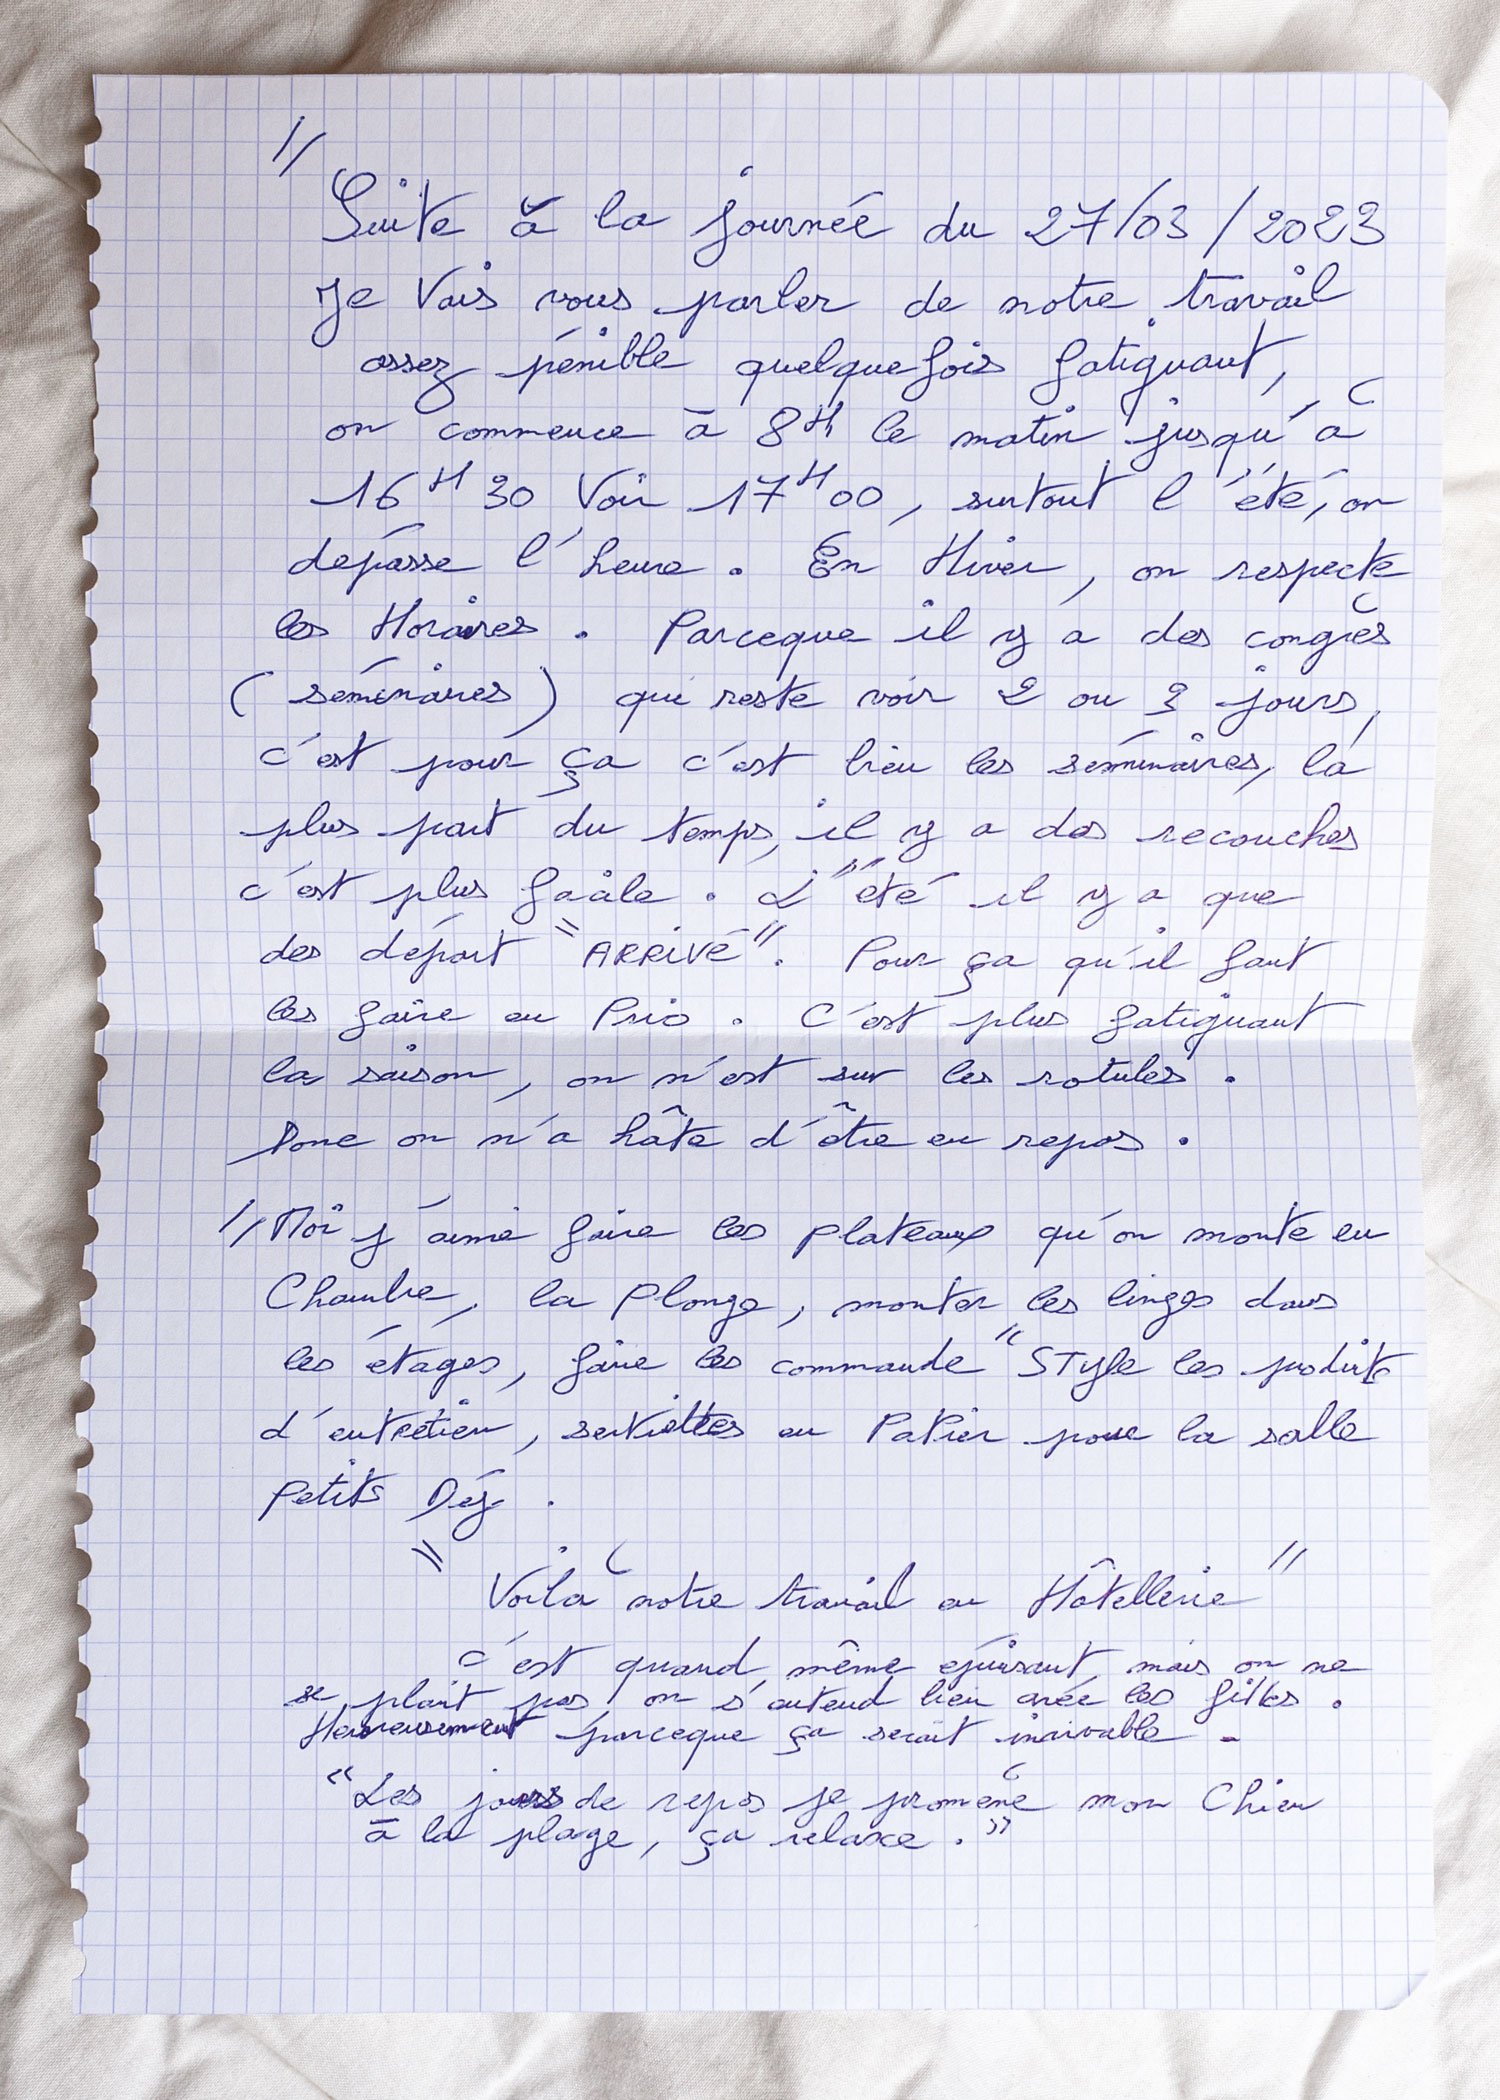 1/
Suite à la journée du 27/03/2023
Je Vais vous parler de notre travail
assez pénible quelquefois fatiguant,
on commence à 8H le matin jusqu'à
16H30 Voir 17H00, surtout l'été, on
dépasse l'heure. En Hiver, on respecte
les Horaires. Parceque il y à des congrès
(séminaires) qui reste voir 2 ou 3 jours,
c'est pour ça c'est bien les séminaires, la
plus part du temps, il y a des recouches
c'est plus facile. L'été il y a que
des départ "ARRIVÉ". Pour ça qu'il faut
les faire en Prio. C'est plus fatiguant
la saison, on n'est sur les rotules.
Donc on n'a hâte d'être en repos.
1/ Moi j'aime faire les plateaux qu'on monte en
Chambre, la Plonge, monter les linges dans
les étages, faire les commande "STyle les produits
d'entretien, serviettes en Papier pour la salle
Petits Déj.
"Voilà notre travail en Hôtellerie"
C'est quand même épuisant, mais on ne
se plaint pas, on s'entend bien avec les filles.
Heureusement parceque ça serait invivable.
"Les jours de repos je promène mon Chien
à la plage, ça relaxe."